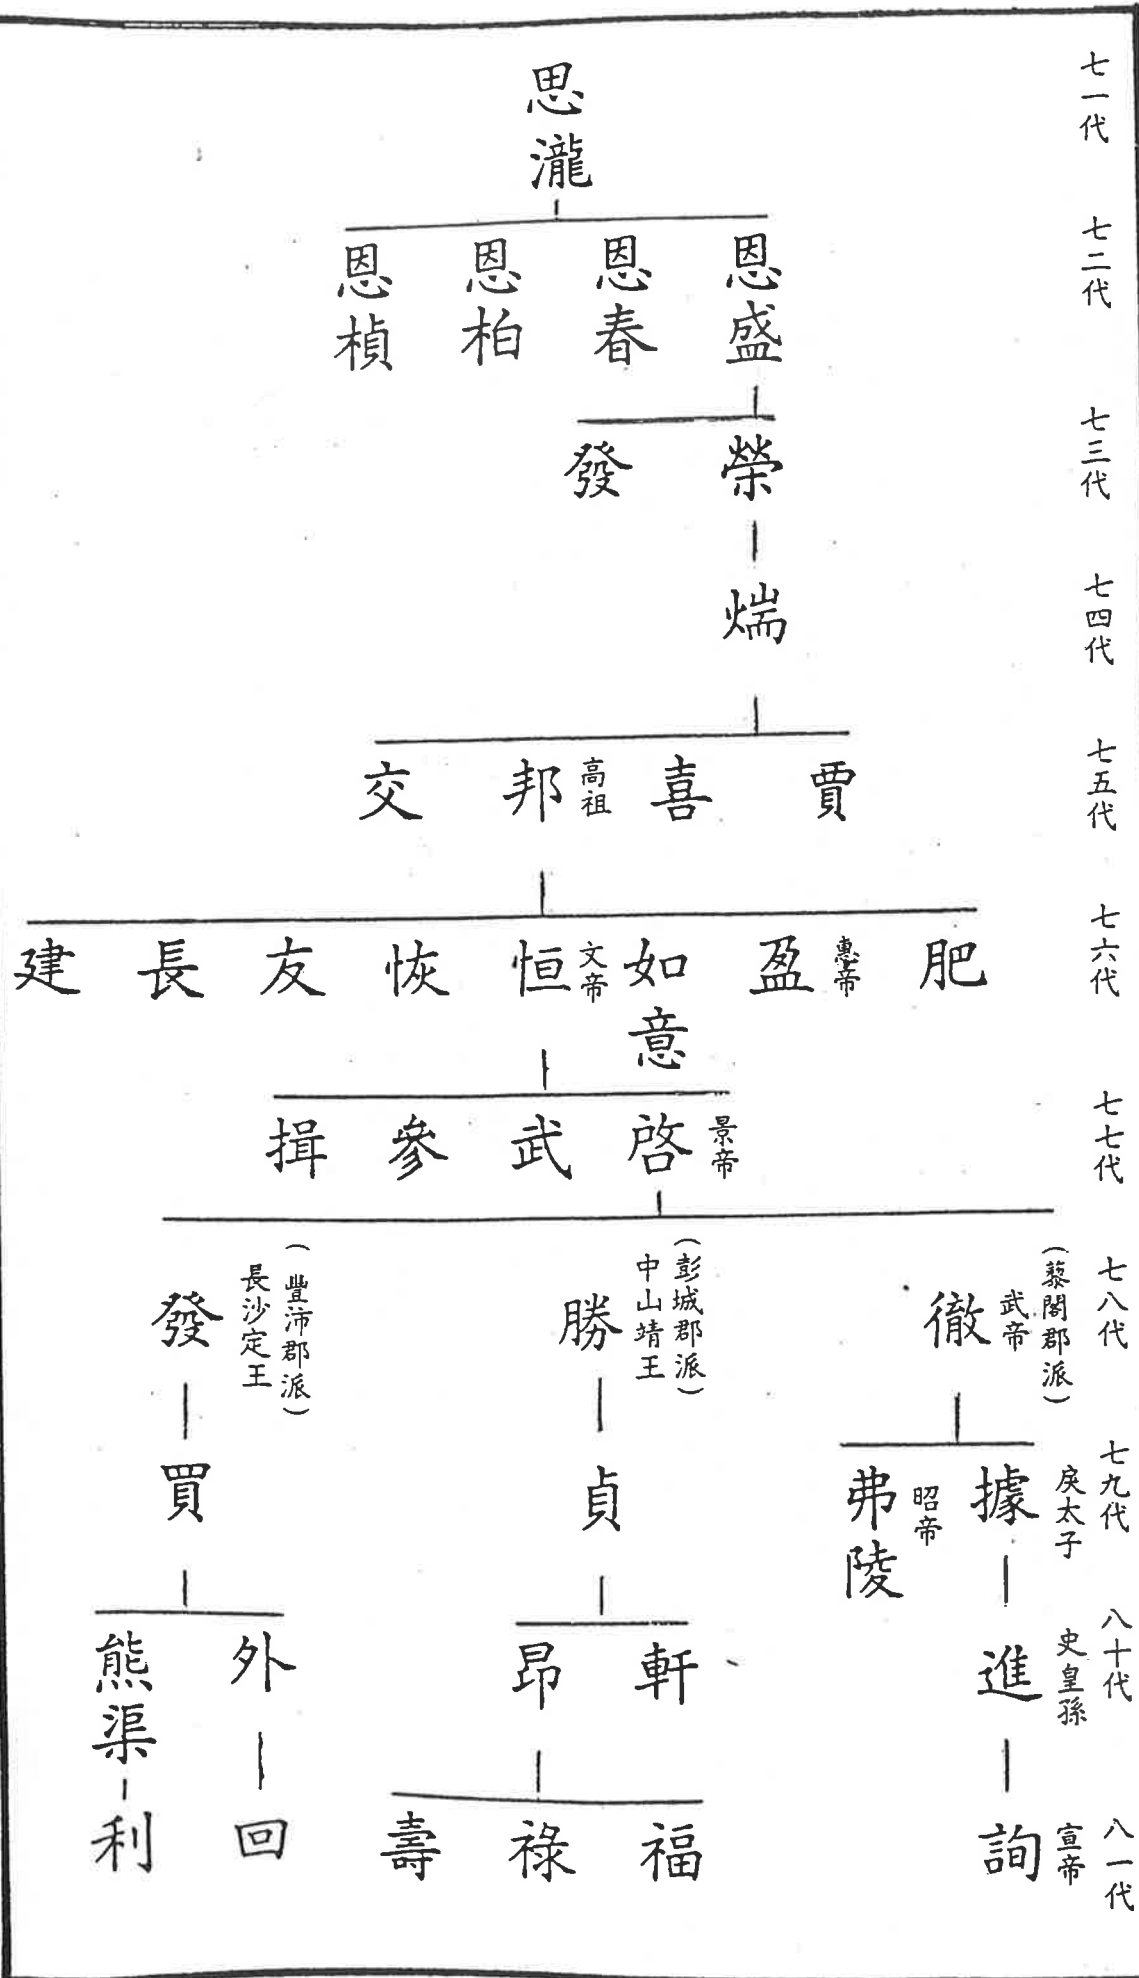 七一代
思瀧
七二代
恩盛
恩春
恩柏
恩楨
七三代
榮
發
七四代
煓
七五代
賈
喜
高祖
邦
交
七六代
肥
惠帝
盈
如意
文帝
恒
恢
友
長
建
七七代
景帝
啓
武
參
揖
七八代
(藜閣郡派)
武帝
徹
(彭城郡派)
中山靖王
勝
(豐沛郡派)
長沙定王
發
七九代
戾太子
據
昭帝
弗陵
貞
買
八十代
史皇孫
進
軒
昂
外
熊渠
八一代
宣帝
詢
福
祿
壽
回
利